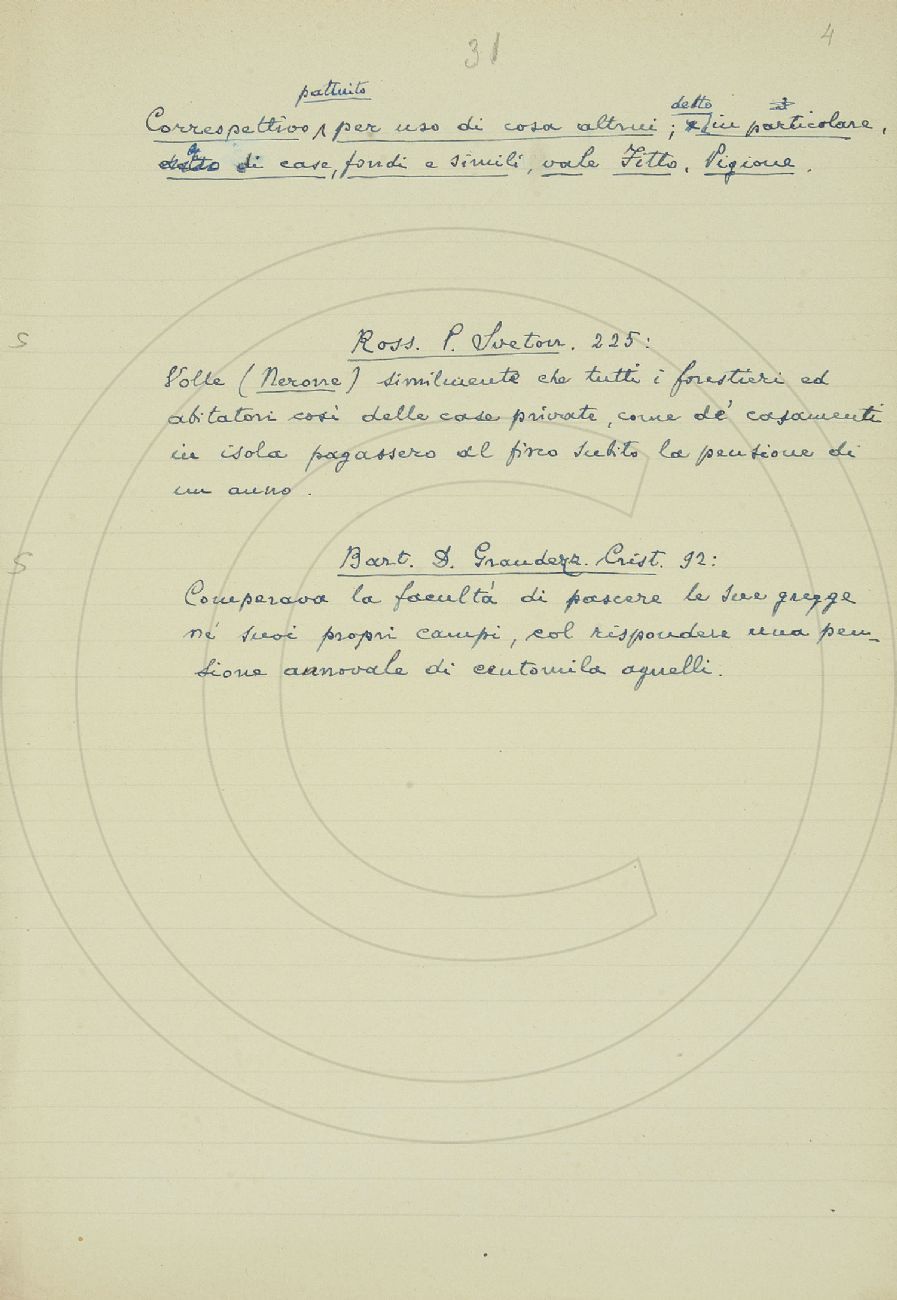 31
4
pattuito
detto
Correspettivo, per uso di cosa altrui; in particolare,
di case, fondi e simili, vale Fitto, Pigione.
S
Ross. P. Sveton. 225:
Volle (Nerone) similmente che tutti i forestieri ed
abitatori così delle case private, come de' casamenti
in isola pagassero al fisco subito la pensione di
un anno.
S
Bart. D. Grandezz. Crist. 92:
Comperava la facultà di pascere le sue gregge
ne' suoi propri campi, col rispondere una pen-
sione annovale di centomila agnelli.